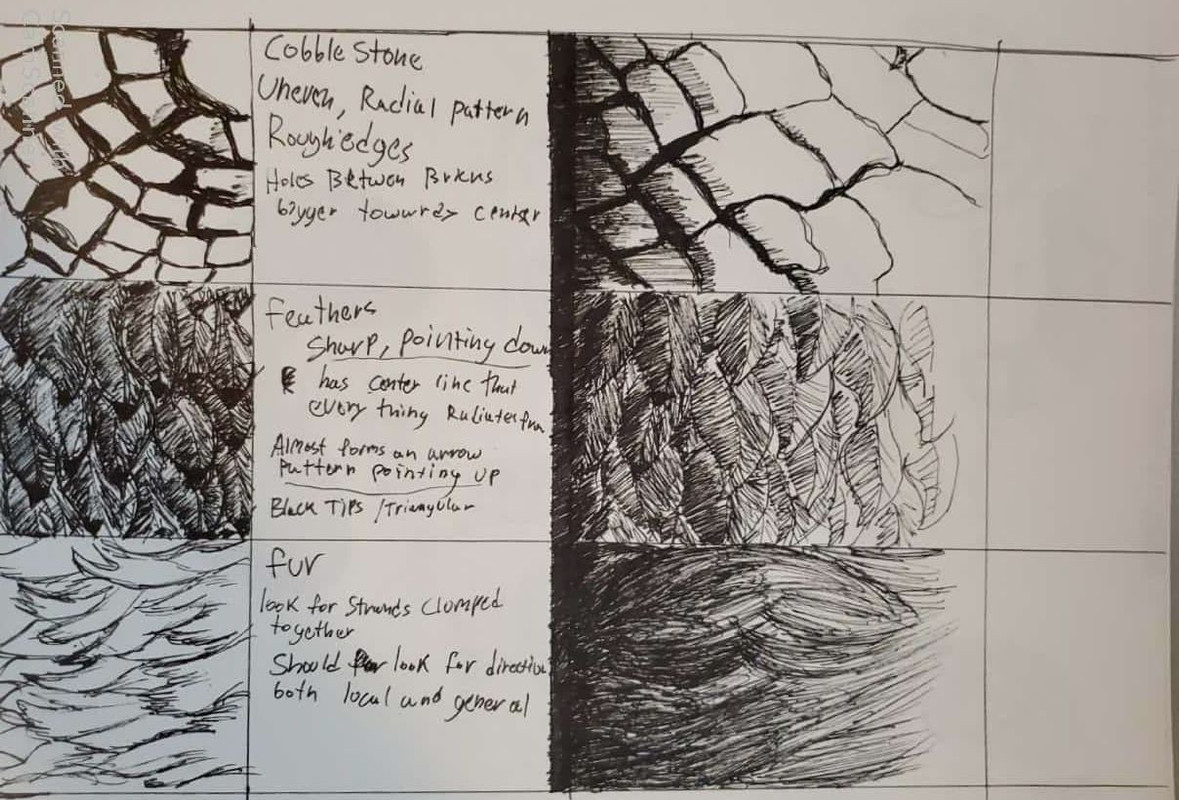 Scanned with
CamScanner
Cobble Stone
Uneven, Radial pattern
Rough edges
Holes Between Bricks
bigger towards center
feathers
Sharp, pointing down
has center line that
every thing Radiates from
Almost forms an arrow
pattern pointing up
Black Tips / Triangular
fur
look for Strands Clumped
together
Should look for direction
both local and general